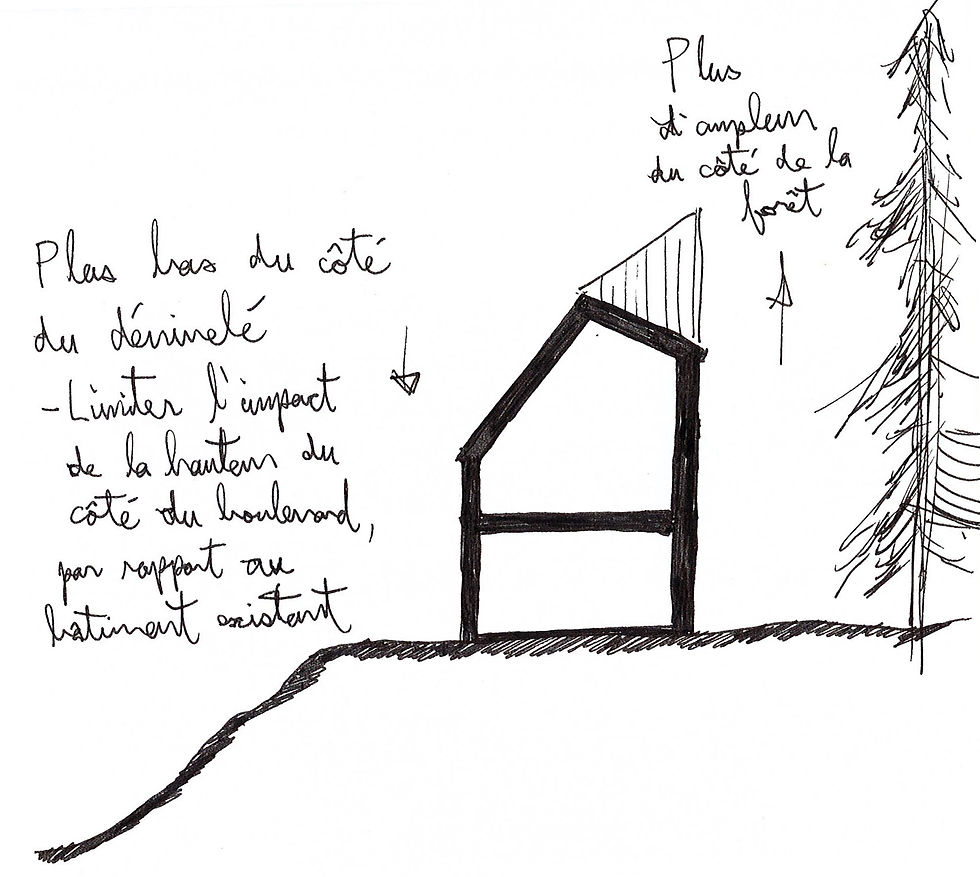 Plus bas du côté
du dénivelé
- Limiter l'impact
de la hauteur du
côté du boulevard,
par rapport au
bâtiment existant
Plus
d'ampleur
du côté de la
forêt